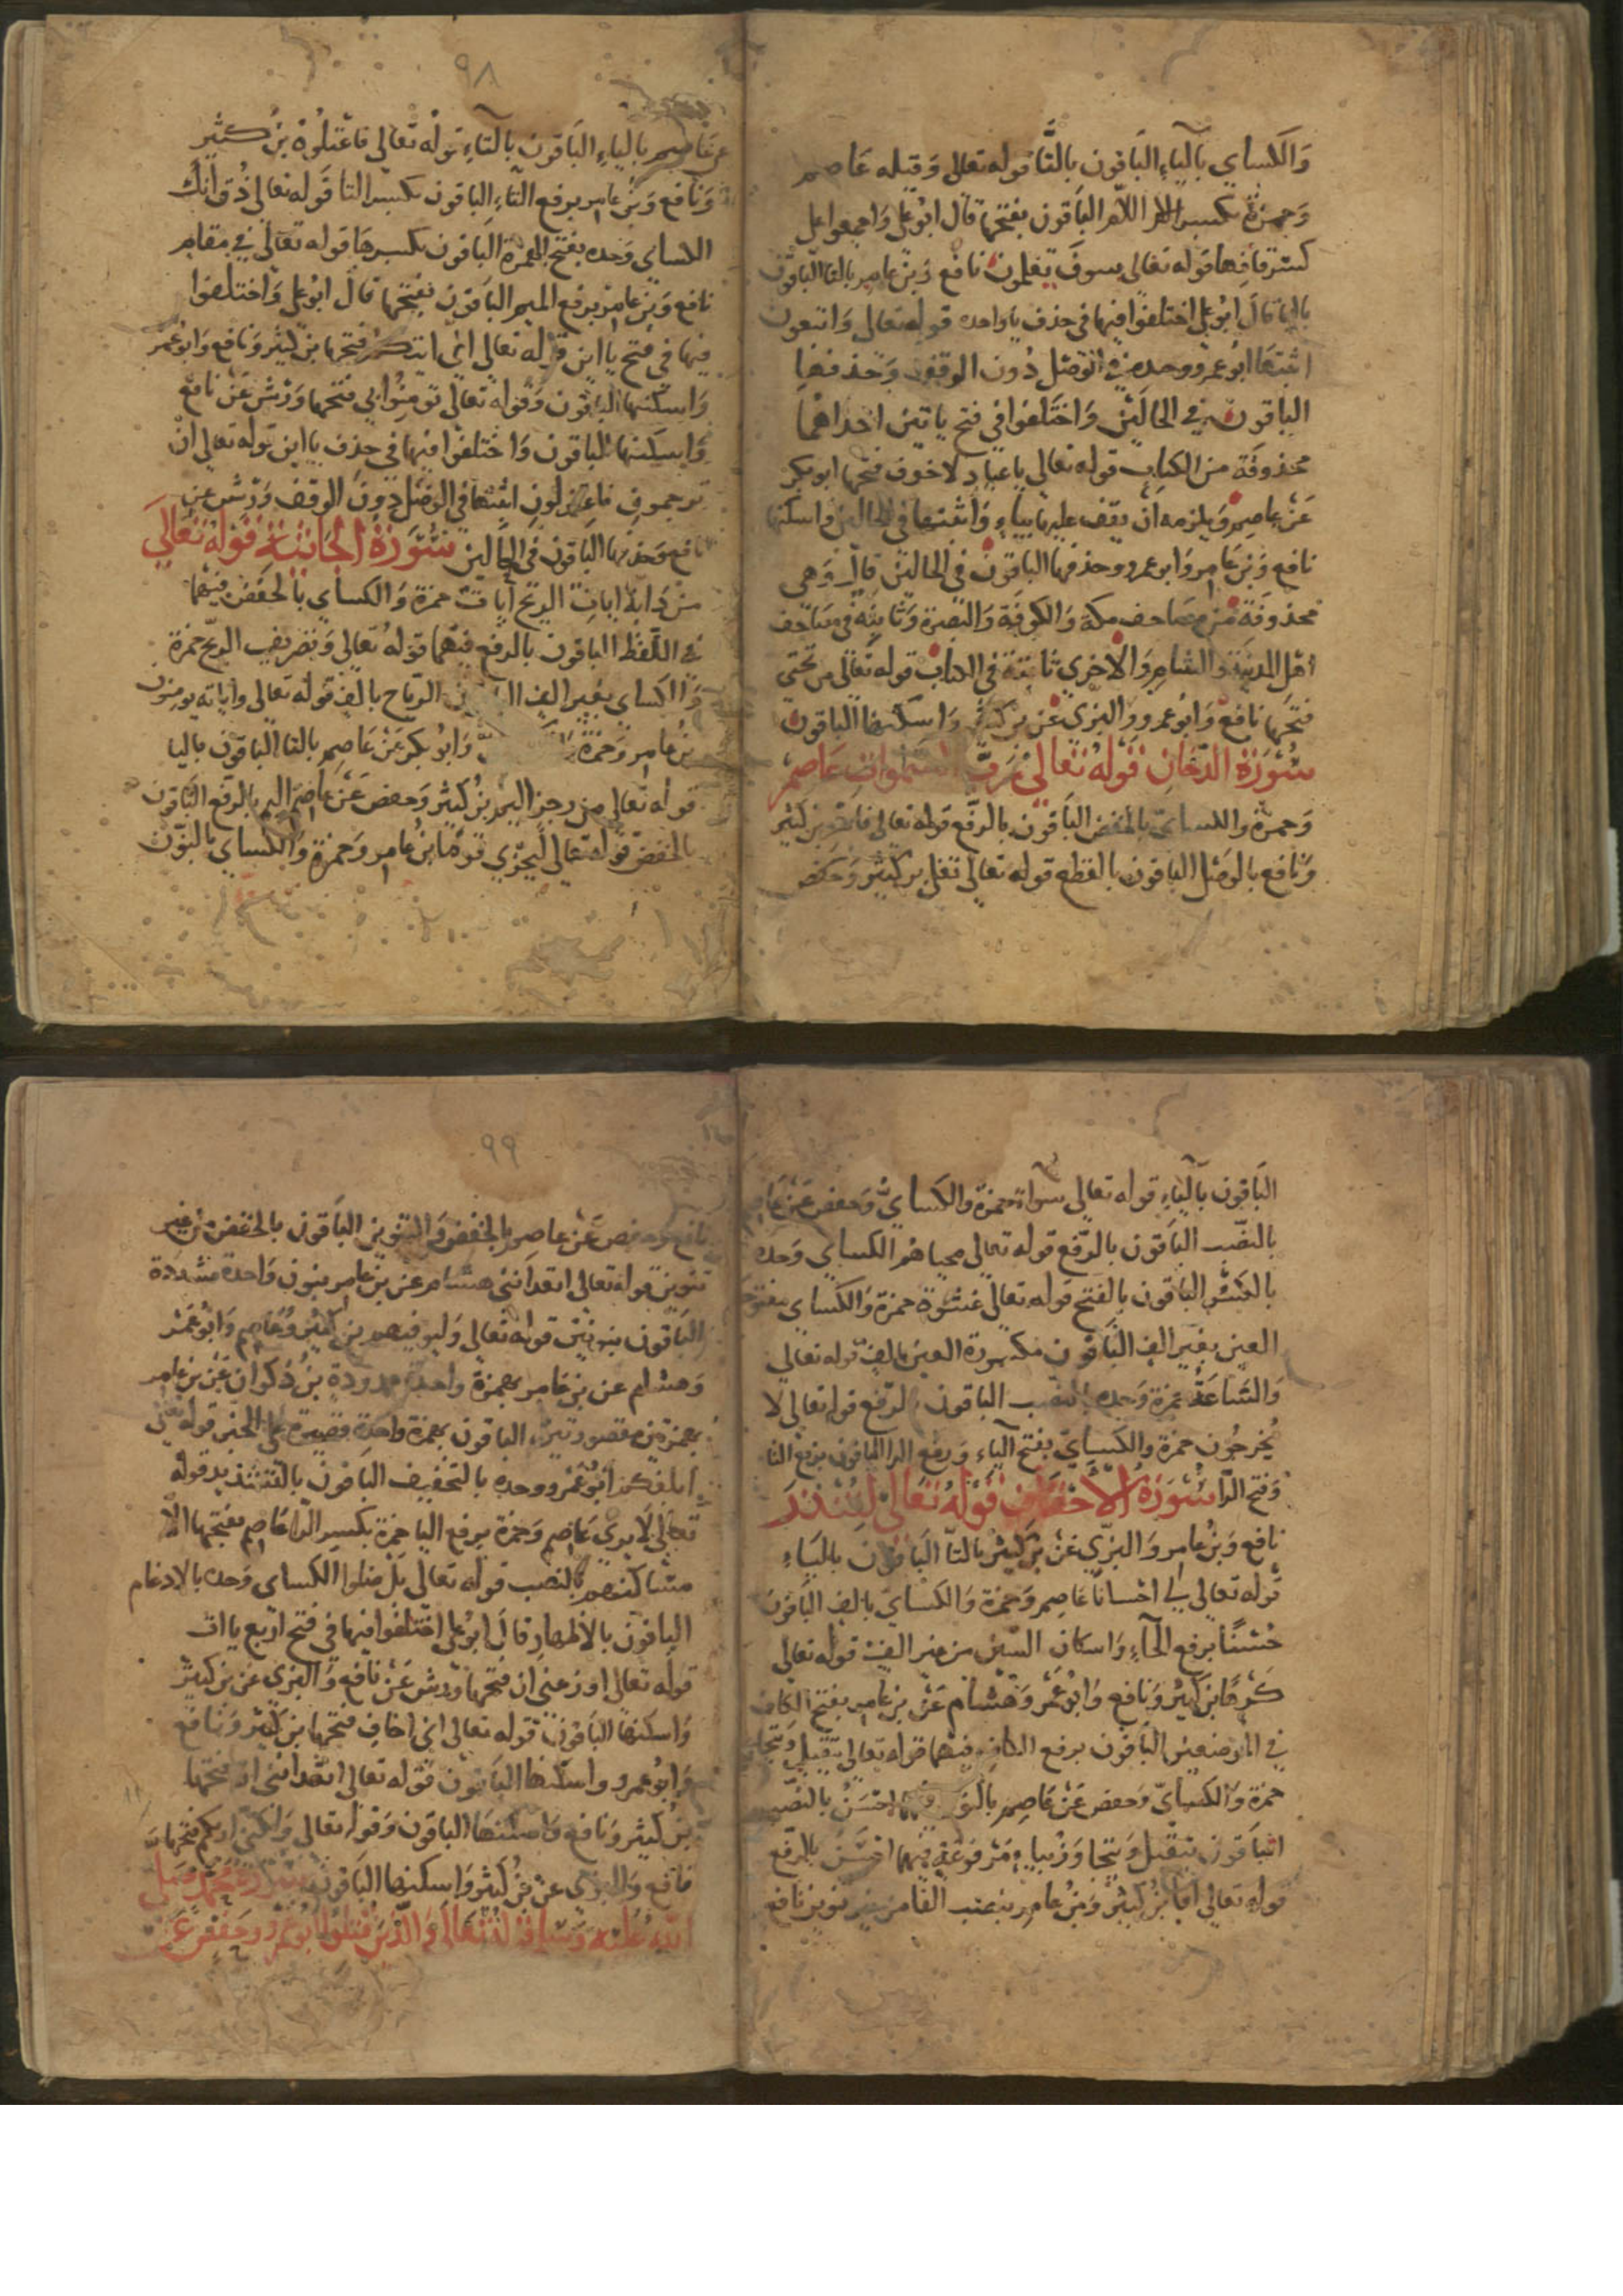 وَالكساي بالياءِ الباقون بالتَّا قوله تعالى وَقيله عَاصم
وَحمزة بكسر اللام الباقون بفتحها قال ابُو علي وَاجمعوا على
كسر قافها قوله تعالى سوفَ يعلمون نافع وَبنُ عامِر بالتا الباقون
باليا قال ابُو علي اختلفوا فيها في حذف ياءٍ واحده قوله تعالى وَاتبعون
اثبتَها ابُو عمرو وحده في الوَصْل دُون الوقف وَحذفها
الباقون في الحالَين وَاختلفوا في فتح ياتين احداهما
محذوفة من الكتاب قوله تعالى يا عبادِ لا خوف فتحها ابو بكر
عَنْ عاصِم وَيلزمه اَنْ يقف عليها بياءٍ وَاثبتها في الحالين واسكنها
نافع وَبنُ عَامر وَابو عمرو وحذفها الباقون في الحالين قال وَهي
محذوفَة من مصاحف مكة وَالكوفَة وَالبَصرة وَثابتة في مصَاحف
اهْل المدينة والشام وَالاخرى ثابتة في الكتاب قوله تعالى من تحتي
فتحَها نافع وَابُو عمرو والبزي عن بن كثير وَاسكنها الباقون
سُورَة الدّخان قوله تعالى رَبّ السَّمواتِ عَاصِم
وَحمزة والكساي بالخفض الباقون بالرّفع قوله تعالى فاسْر بن كثير
وَنافع بالوَصْل الباقون بالقطع قوله تعالى تغلي بن كثير وَحفص
٩٨
عن عَاصِم بالياءِ البَاقون بالتاءِ قوله تعالى فاعْتلُوهُ بنُ كثير
وَنافع وَبنُ عامِر برفع التاءِ الباقون بكسر التا قوله تعالى ذُق اَنكَ
الكساى وَحده بفتح الهمزة الباقون بكسرها قوله تعالى في مقام
نافع وَبنُ عامِر برفع الميم الباقون بفتحها قال ابُو علي وَاختلفوا
فيها في فتح ياءين قوله تعالى اني اتيكم فتحها بن كثير وَنافع وَابُو عمرو
وَاسكنها الباقون وَقوله تعالى تومنُوا لي فتحها وَرْش عَنْ نافع
وَاسكنها الباقون وَاختلفوا فيها في حذف ياءين قوله تعالى انْ
ترجمون فاعتزلون اثبتها في الوَصْل دون الوقف وَرْش عن
نافع وَحذفها الباقون في الحالين سُورَة الجَاثية قوله تعالى
من دَابة ايات الريح ايات حمزة وَالكساي بالخفض فيهما
في اللّفظ الباقون بالرفع فيهما قوله تعالى وَتصريف الريح حمزة
وَالكساي بغير الف الرّياح بالف قوله تعالى واياته يومنون
بنُ عامِر وَحمزة وَابُو بكر عَنْ عَاصِم بالتا الباقون باليا
قوله تعالى من رجز اليم بنُ كثير وَحفص عَنْ عَاصِم اليم بالرّفع الباقون
بالخفض قوله تعالى ليجزي قومًا بنُ عامِر وَحمزة وَالكساي بالنّون
الباقون بالياءِ قوله تعالى سواءً حمزة والكساي وَحفص عَنْ عَاصِم
بالنصب الباقون بالرّفع قوله تعالى محياهُم الكساي وَحده
بالكسْر الباقون بالفتح قوله تعالى غشْوة حمزة وَالكساي بفتح
العين بغير الف الباقون مكسورة العين بالف قوله تعالى
وَالسَّاعَة حمزة وَحده بالنصب الباقون بالرّفع قوله تعالى لا
يخرجُون حمزة والكساي بفتح الياءِ وَرفع الرا الباقون برفع اليا
وَفتح الرّا سُورَة الاحقاف قوله تعالى لتنذر
نافع وَبنُ عامِر وَالبزّي عَنْ بن كثير بالتا الباقون بالياءِ
قوله تعالى احْسانًا عَاصِم وَحمزة وَالكسايّ بالف الباقون
حُسْنًا برفع الحاءِ وَاسكان السّين من غير الف قوله تعالى
كَرهًا بن كثير وَنافع وَابُو عمْرو وَهشام عَنْ بن عامِر بفتح الكاف
في الموضعين الباقون برفع الكاف فيهما قوله تعالى نتقبل وَنتجاوز
حمزة وَالكسايّ وَحفص عَنْ عَاصِم بالنون فيهما احْسَنَ بالنصب
الباقون يتقبل وَيتجاوز بياءٍ مَرفوعَة فيهما احْسَنُ بالرّفع
قوله تعالى افّ بنُ كثير وَبنُ عامِر بنصب الفا من غير تنوين نافع
٩٩
نافع وَحفص عَنْ عَاصِم بالخفض وَالتنوين الباقون بالخفض من غير
تنوين قوله تعالى اتعدَانني هشام عن بن عامِر بنون وَاحدة مشددة
الباقون بنونين قوله تعالى وَليوفيهم بن كثير وعَاصِم وَابُو عمْرو
وَهشام عن بن عَامر بهمزة واحدة ممدودة بنُ ذكوان عَنْ بن عامِر
بهمزتين مقصورتين الباقون بهمزة واحدة قصيرة على الخبر قوله تعالى
ابلغكم ابُو عمْرو وحده بالتخفيف الباقون بالتشديد قوله
تعالى لا يرى عَاصم وَحمزة برفع اليا حمزة بكسر الرّا عَاصم بفتحها الا
مساكنهم بالنصب قوله تعالى بَلْ ضلوا الكساى وَحده بالادغام
الباقون بالاظهار قال ابُو علي اختلفوا فيها في فتح اربع ياات
قوله تعالى اوزعني ان فتحها وَرْش عَنْ نافع وَالبزى عن بن كثير
وَاسكنها الباقون قوله تعالى اني اخاف فتحها بن كثير وَنافع
وَابُو عمرو واسكنها الباقون قوله تعالى اتعدانني ان فتحها
بن كثير وَنافع وَاسكنها الباقون وَقوله تعالى وَلكني اريكم فتحها
نافع وَالبزي عن بن كثير وَاسكنها الباقون سورة محمد صلى
الله عليه وسلم قوله تعالى وَالذين قتلوا ابُو عمرو وحفص عن